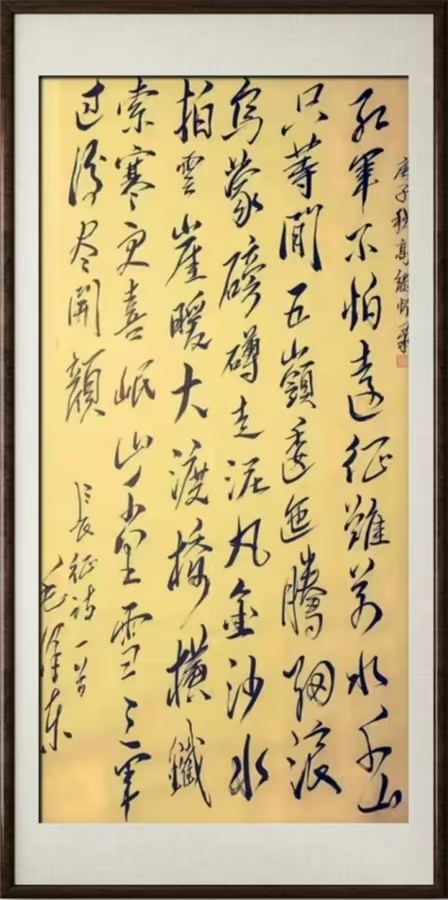 庚子秋
红軍不怕遠征難萬水千山
只等閒五嶺逶迤騰細浪
烏蒙磅礴走泥丸金沙水
拍雲崖暖大渡橋橫鐵
索寒更喜岷山千里雪三軍
过後尽開顏
長征诗一首
毛澤東